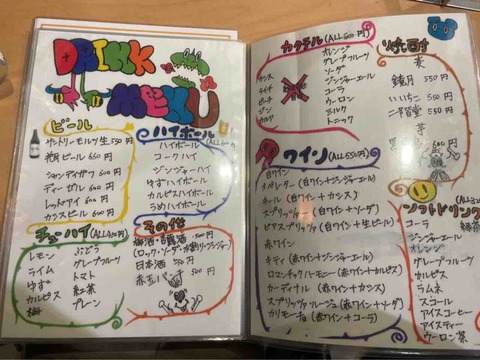 DRINK
MENU
ビール
サントリーモルツ生 550円
瓶ビール 650円
シャンディガフ 600円
ディーゼル 600円
レッドアイ 600円
カシスビール 600円
ハイボール
ハイボール
コークハイ
ジンジャーハイ
ゆずハイボール
カルピスハイボール
うめハイボール
チューハイ
レモン ぶどう
ライム グレープフルーツ
ゆず トマト
カルピス 紅茶
梅 プレーン
その他
(ロック・ソーダ・水割り・ジンジャー)
日本酒
赤玉パンチ 500円
カクテル (ALL 500円)
カシス
ライチ
ピーチ
ジン
オレンジ
グレープフルーツ
ソーダ
ジンジャーエール
コーラ
ウーロン
ミルク
トニック
焼酎
麦
鏡月 550円
いいちこ 550円
二階堂 550円
芋
600円
ワイン (ALL 550円)
白ワイン
オペレーター (白ワイン+ジンジャーエール)
キール (白ワイン+カシス)
スプリッツァー (白ワイン+ソーダ)
ビアスプリッツァ (白ワイン+生ビール)
赤ワイン
キティ (赤ワイン+ジンジャーエール)
ロマンチックハーモニー (赤ワイン+カルピス)
カーディナル (赤ワイン+カシス)
スプリッツァルージュ (赤ワイン+ソーダ)
カリモーチョ (赤ワイン+コーラ)
ソフトドリンク
コーラ
ジンジャーエール
オレンジ
グレープフルーツ
カルピス
ラムネ
スコール
アイスコーヒー
アイスティー
ウーロン茶
緑茶